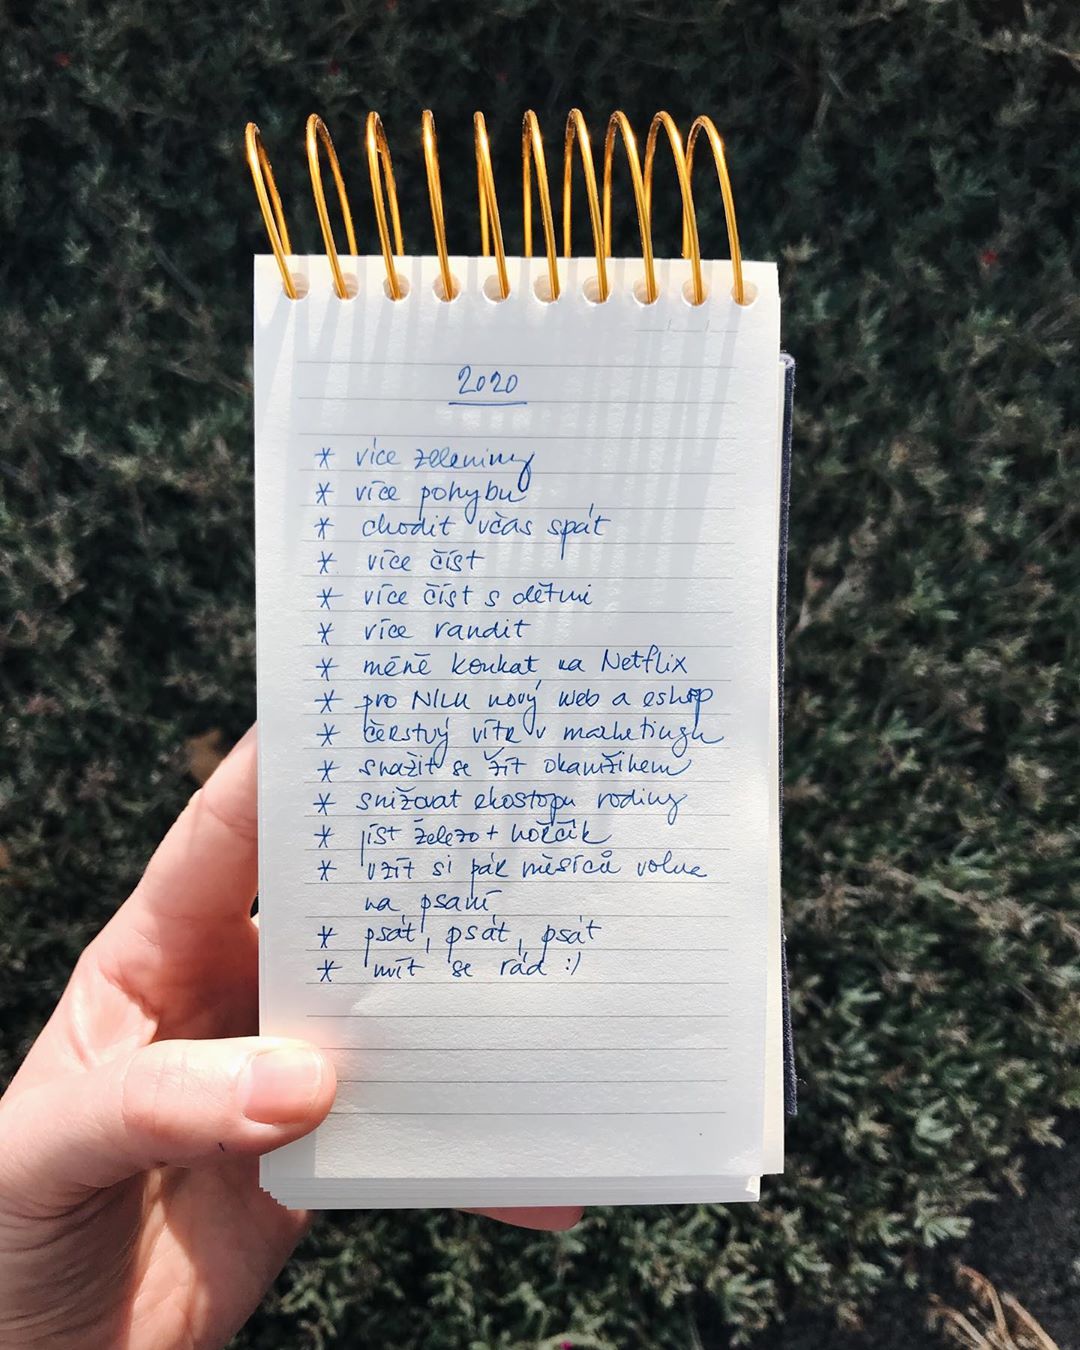 2020
* více zeleniny
* více pohybu
* chodit včas spát
* více číst
* více číst s dětmi
* více randit
* méně koukat na Netflix
* pro NILU nový web a eshop
* čerstvý vítr v marketingu
* snažit se žít okamžikem
* snižovat ekostopu rodiny
* jíst železo + hořčík
* vzít si pár měsíců volna
na psaní
* psát, psát, psát
* mít se rád :)